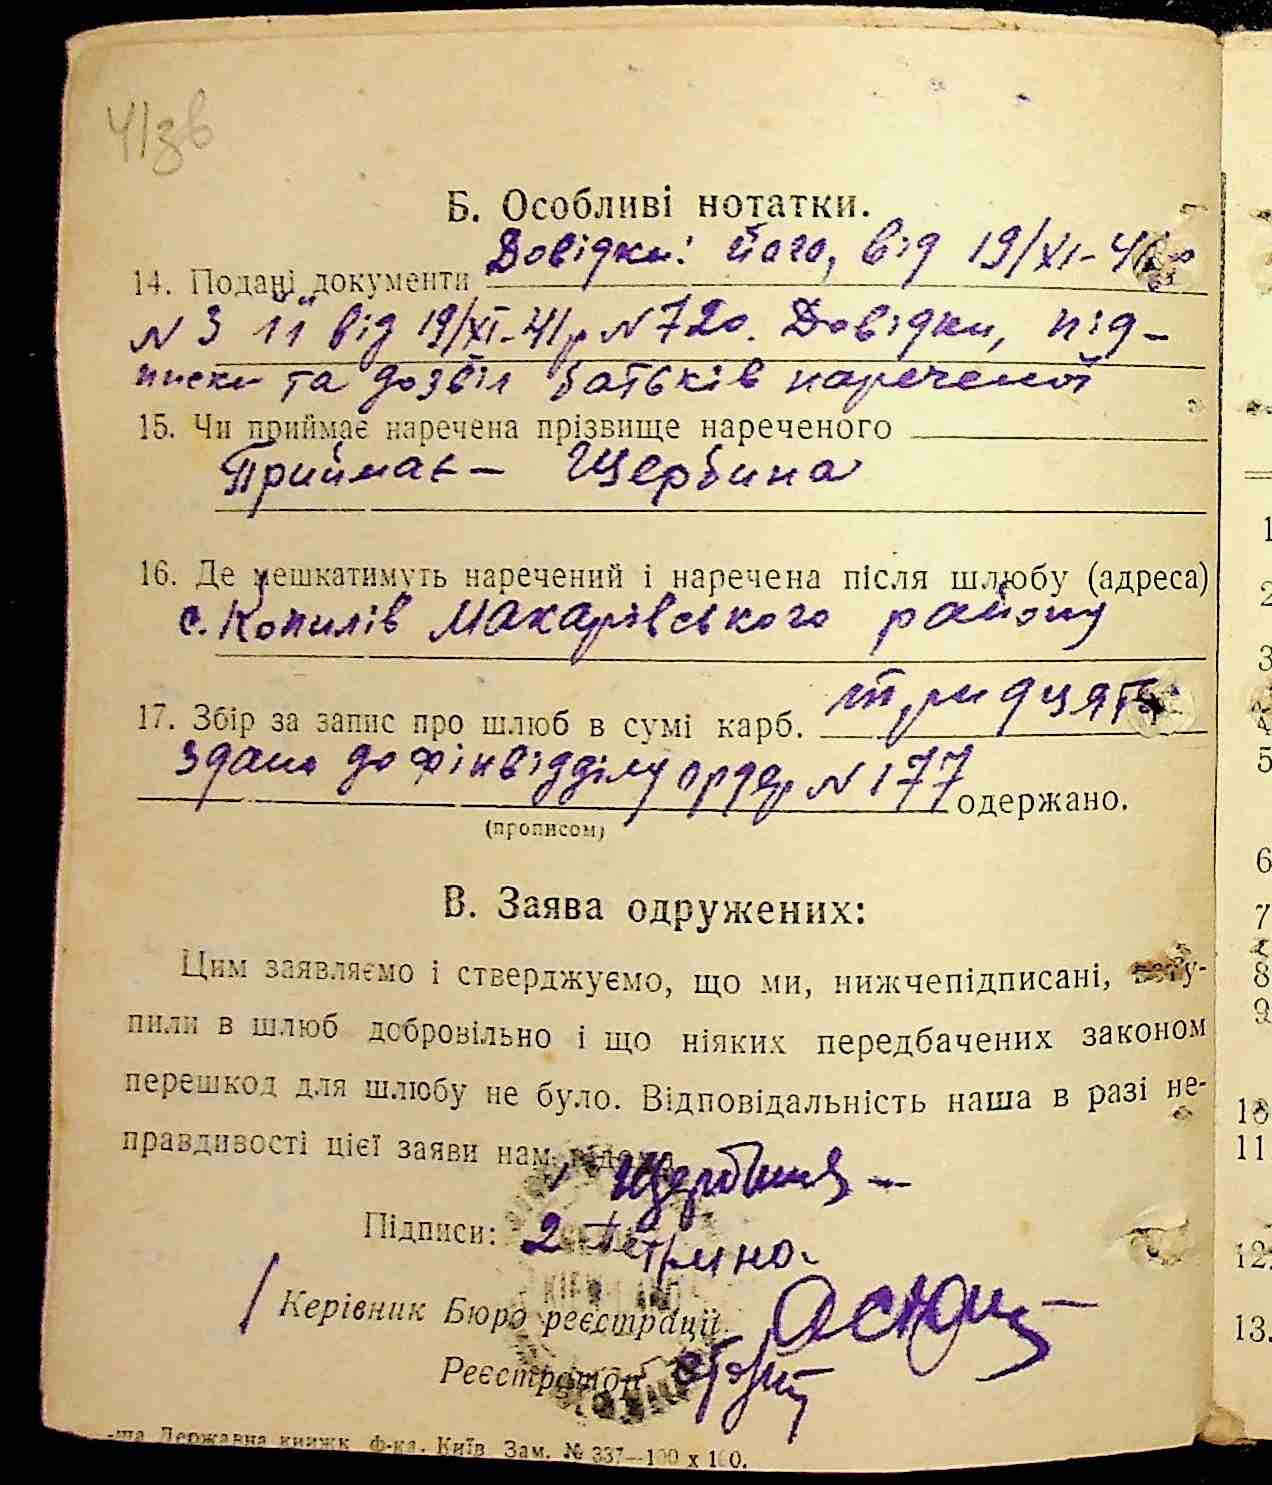 41зв
Б. Особливі нотатки.
Довідки: його, від 19/XI-41р
14. Подані документи
№ 3 її від 19/XI-41р №720. Довідки, під-
писки та дозвіл батьків нареченої
15. Чи приймає наречена прізвище нареченого
Приймає – Щербина
16. Де мешкатимуть наречений і наречена після шлюбу (адреса)
с. Копилів Макарівського району
17. Збір за запис про шлюб в сумі карб. тридцять
здано до фінвідділу ордер №177 одержано.
(прописом)
В. Заява одружених:
Цим заявляємо і стверджуємо, що ми, нижчепідписані, всту-
пили в шлюб добровільно і що ніяких передбачених законом
перешкод для шлюбу не було. Відповідальність наша в разі не-
правдивості цієї заяви нам відома
1 Щербина
Підписи: 2 Петрина
Керівник Бюро реєстрації
Реєстратор
-ша Державна книжк. ф-ка. Київ. Зам. № 337—100 х 100.
1
2
3
4
5
6
7
8
9
10
11
12.
13.